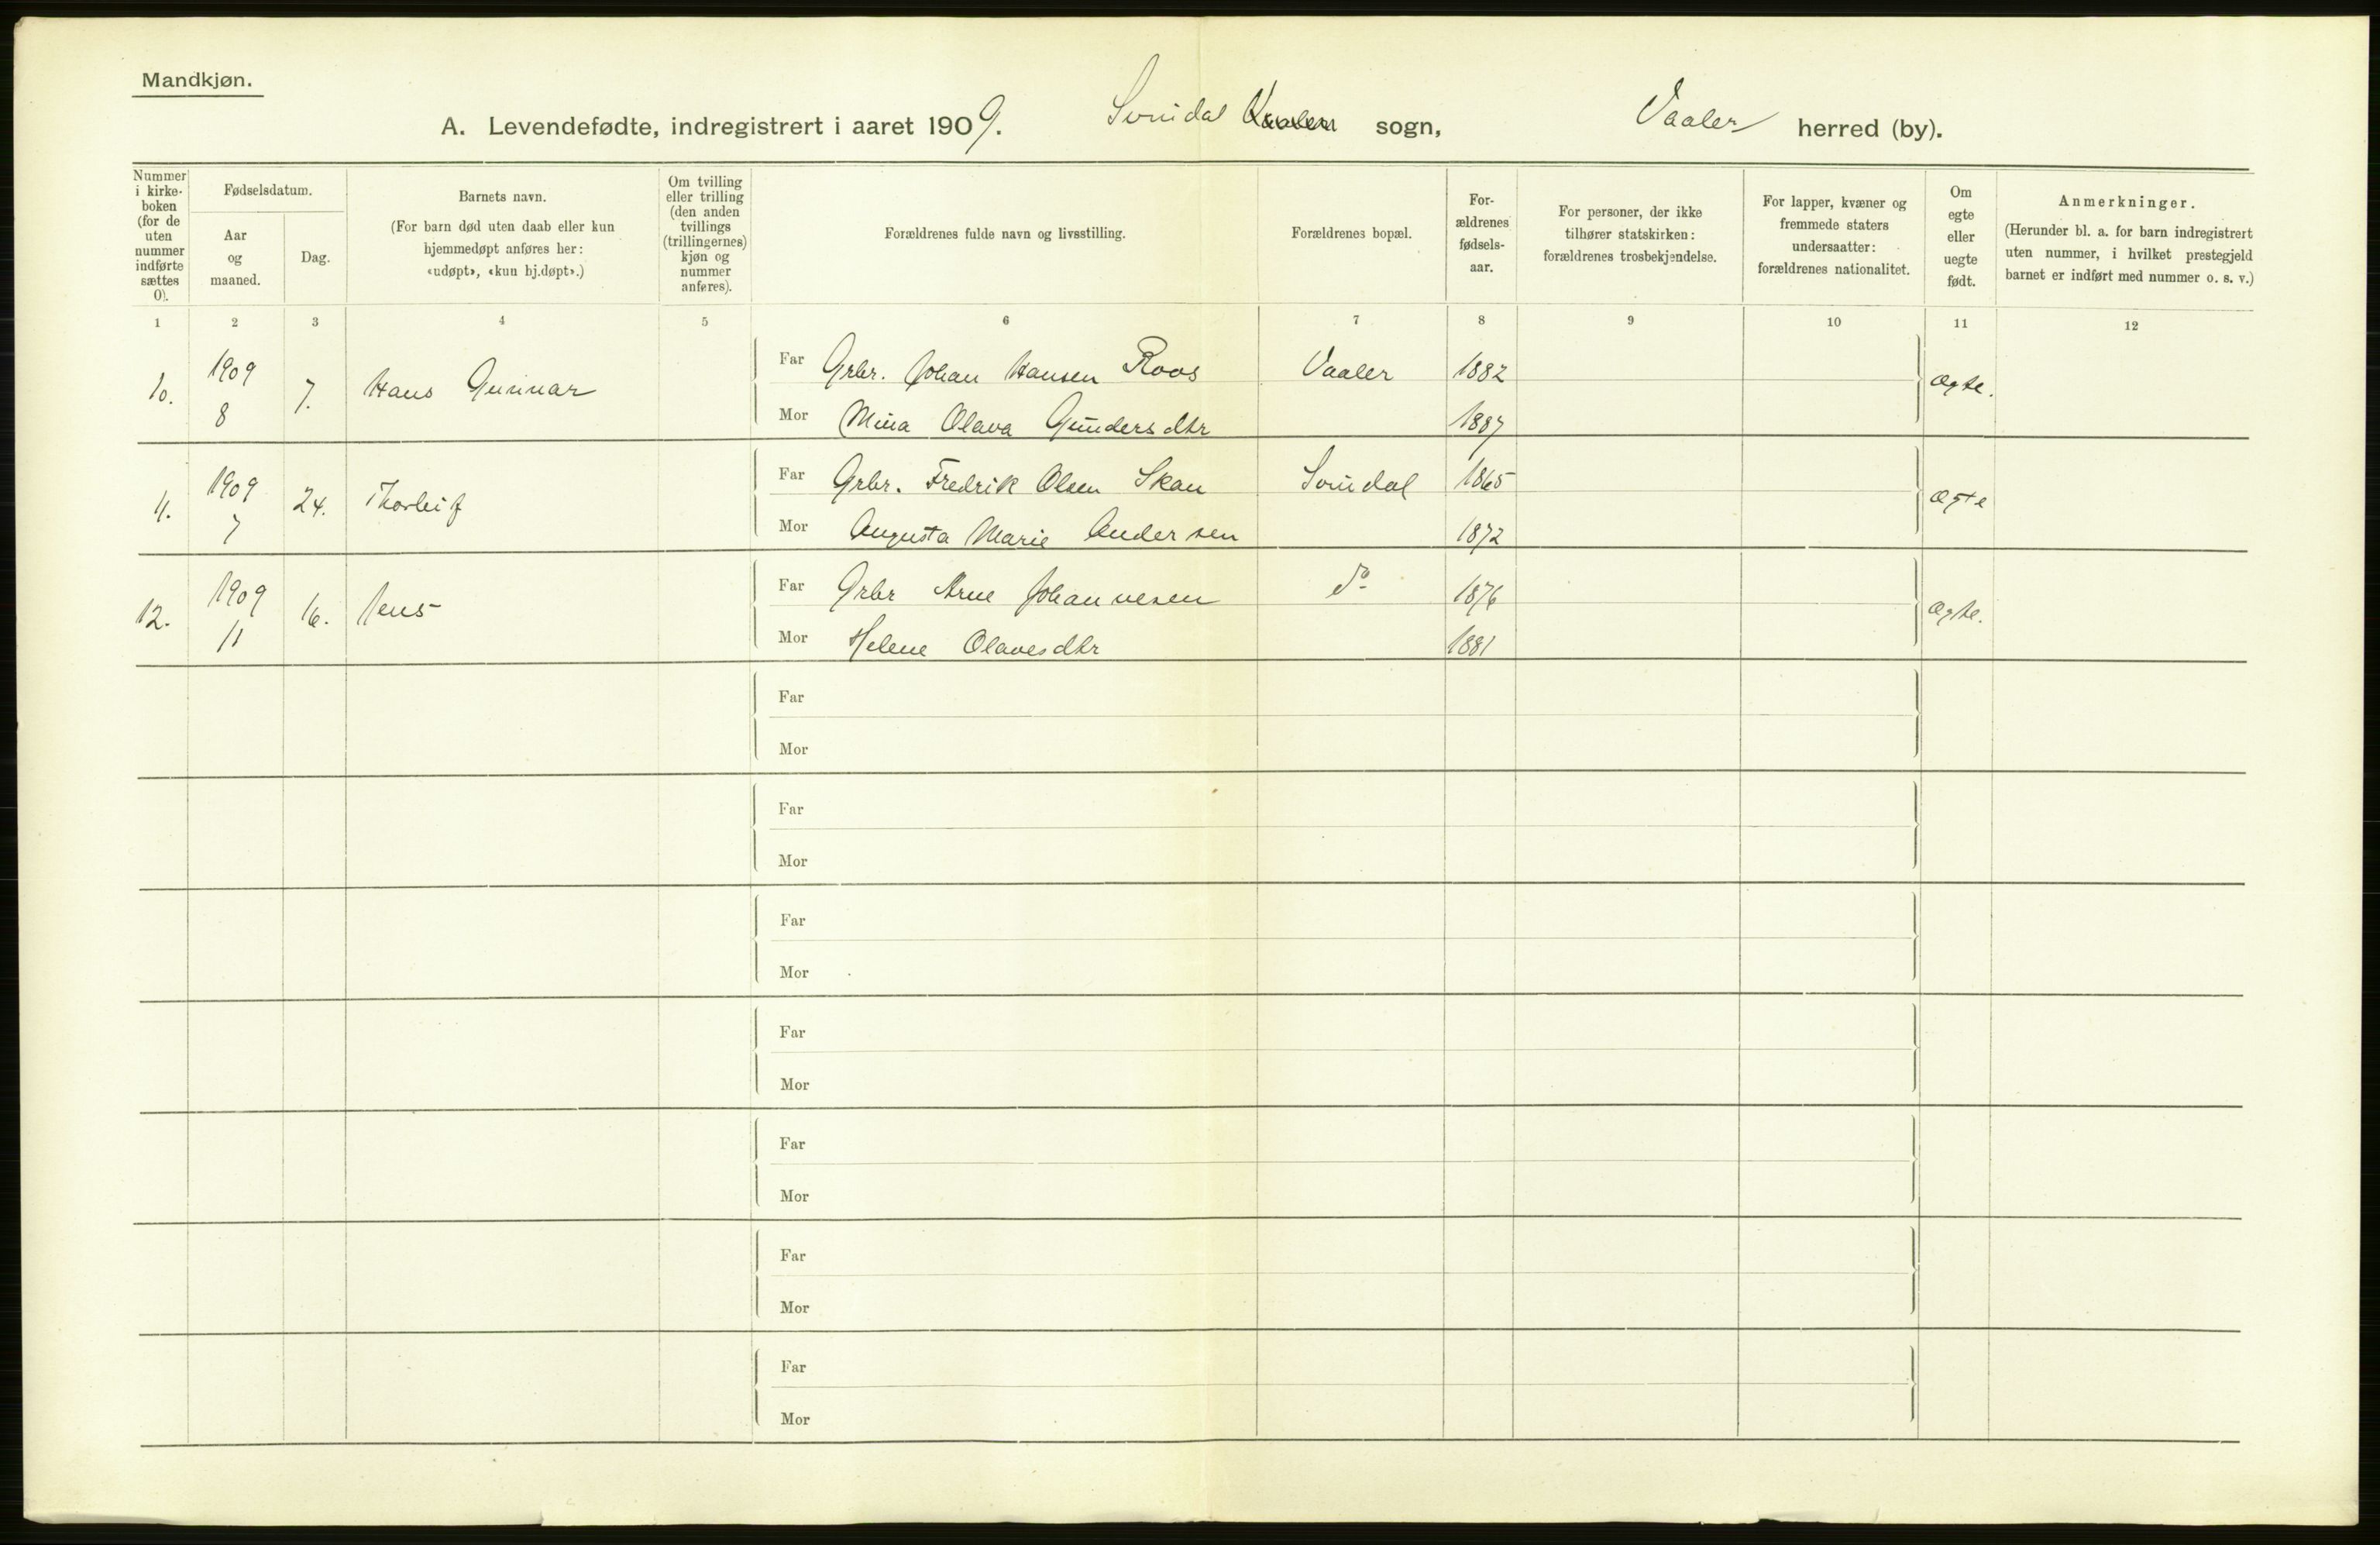 Mandkjøn.
A. Levendefødte, indregistrert i aaret 1909. Svindal Vaaler sogn, Vaaler herred (by).
Nummer i kirkeboken (for de uten nummer indførte sættes 0).
Fødselsdatum.
Aar og maaned.
Dag.
Barnets navn.
(For barn død uten daab eller kun hjemmedøpt anføres her: «udøpt», «kun hj.døpt».)
Om tvilling eller trilling (den anden tvillings (trillingernes) kjøn og nummer anføres).
Forældrenes fulde navn og livsstilling.
Forældrenes bopæl.
Forældrenes fødselsaar.
For personer, der ikke tilhører statskirken: forældrenes trosbekjendelse.
For lapper, kvæner og fremmede staters undersaatter: forældrenes nationalitet.
Om egte eller uegte født.
Anmerkninger.
(Herunder bl. a. for barn indregistrert uten nummer, i hvilket prestegjeld barnet er indført med nummer o. s. v.)
1 2 3 4 5 6 7 8 9 10 11 12
10. 1909 8 7. Hans Gunnar Far Grbr. Johan Hansen Roos Vaaler 1882 Ægte.
Mor Mina Olava Gundersdtr 1887
11. 1909 7 24. Thorleif Far Grbr. Fredrik Olsen Skau Svindal 1865 Ægte
Mor Augusta Marie Andersen 1872
12. 1909 11 16. Jens Far Grbr Arne Johannesen do 1876 Ægte.
Mor Helene Olavesdtr 1881
Far
Mor
Far
Mor
Far
Mor
Far
Mor
Far
Mor
Far
Mor
Far
Mor